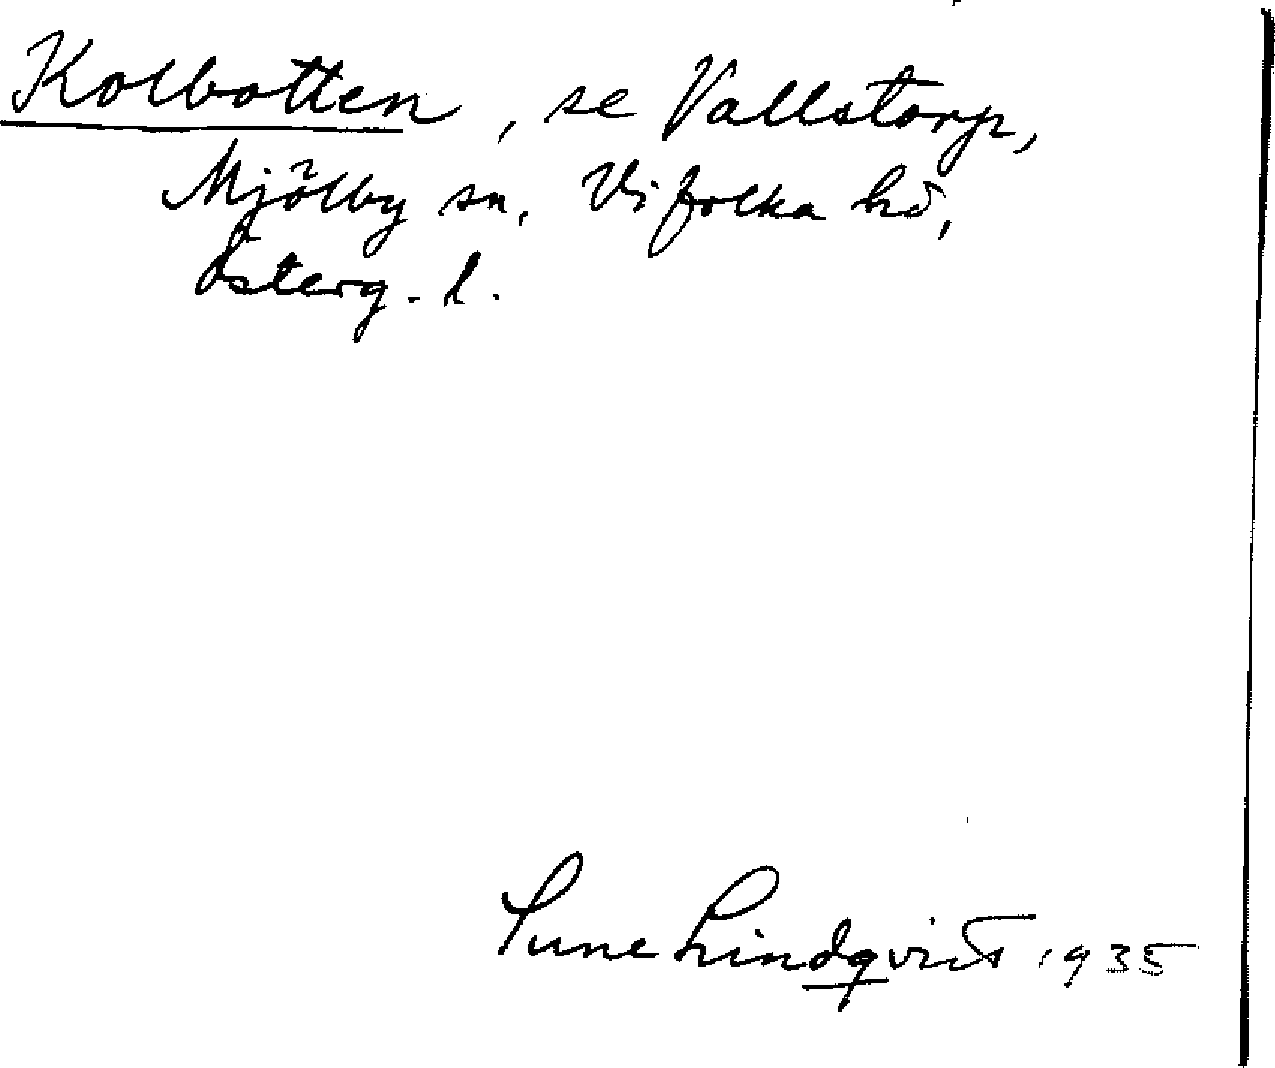 Kolbotten, se Vallstorp,
Mjölby sn, Vifolka hd,
Österg. l.
Sune Lindqvist 1935